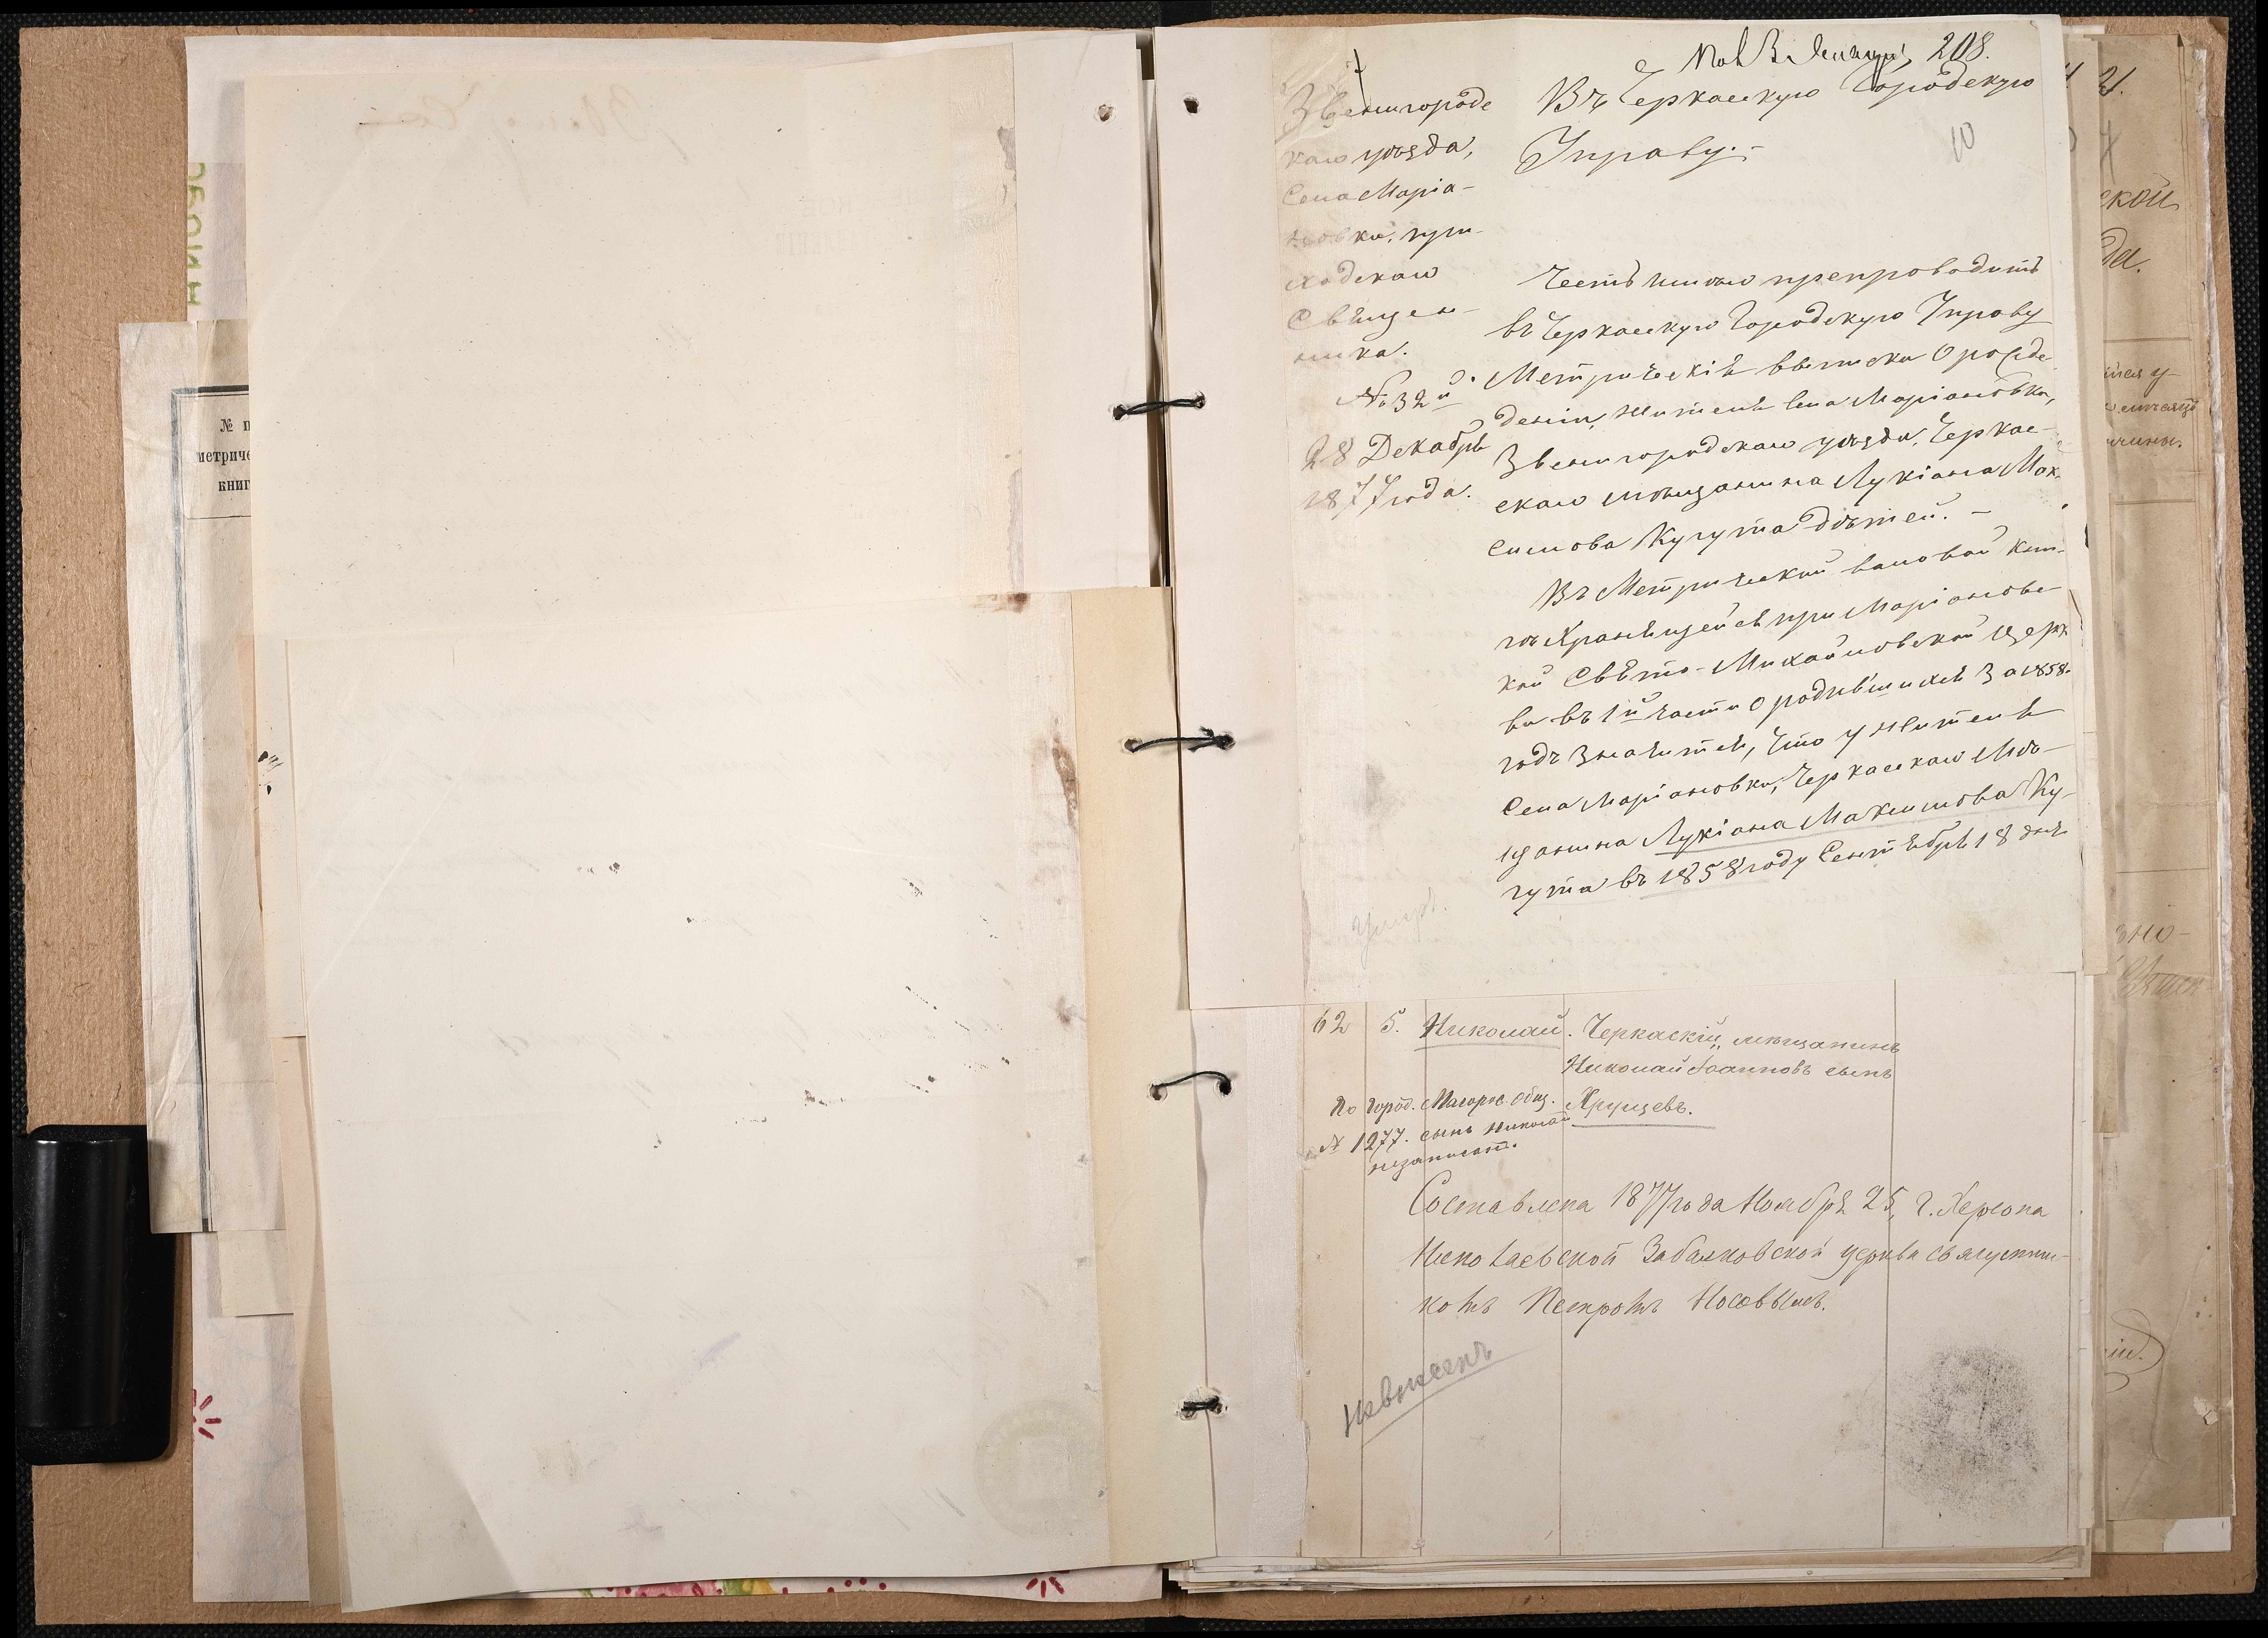 № п
метриче
книг
208.
Звенигородс
каго уѣзда,
Села Марiа-
новки, при-
ходскаго
Священ-
ника.
№ 32й.
28 Декабря
1877 года.
Въ Черкасскую Городскую
Управу.-
10
Честь имѣю препроводить
въ Черкасскую Городскую Управу
Метрическiя выписки о рожде-
денiи, жителя села Марiановки,
Звенигородскаго уѣзда, Черкас-
скаго мѣщанина Лукiана Мак-
симова Кугута дѣтей. -
Въ Метрической паповой кни-
гѣ хранящейся при Марiановс-
кой Свято-Михайловской церк
ви въ 1й части о родившихся за 1858.
годъ значится, что у жителя
Села Марiановки, Черкасскаго Мѣ-
щанина Лукiана Максимова Ку-
гута въ 1858 году Сентября 18 дня
Умеръ.
62 5. Николай. Черкаскiй мѣщанинъ
Николай Iоанновъ сынъ
Хрущевъ.
По город. общ.
№ 1277. сынъ Николай
незаписанъ.
Составлена 1877 года Ноября 25, г. Херсона
Николаевской Забалковской церкви священни-
комъ Петромъ Носовымъ.
невнесенъ
ской
да.